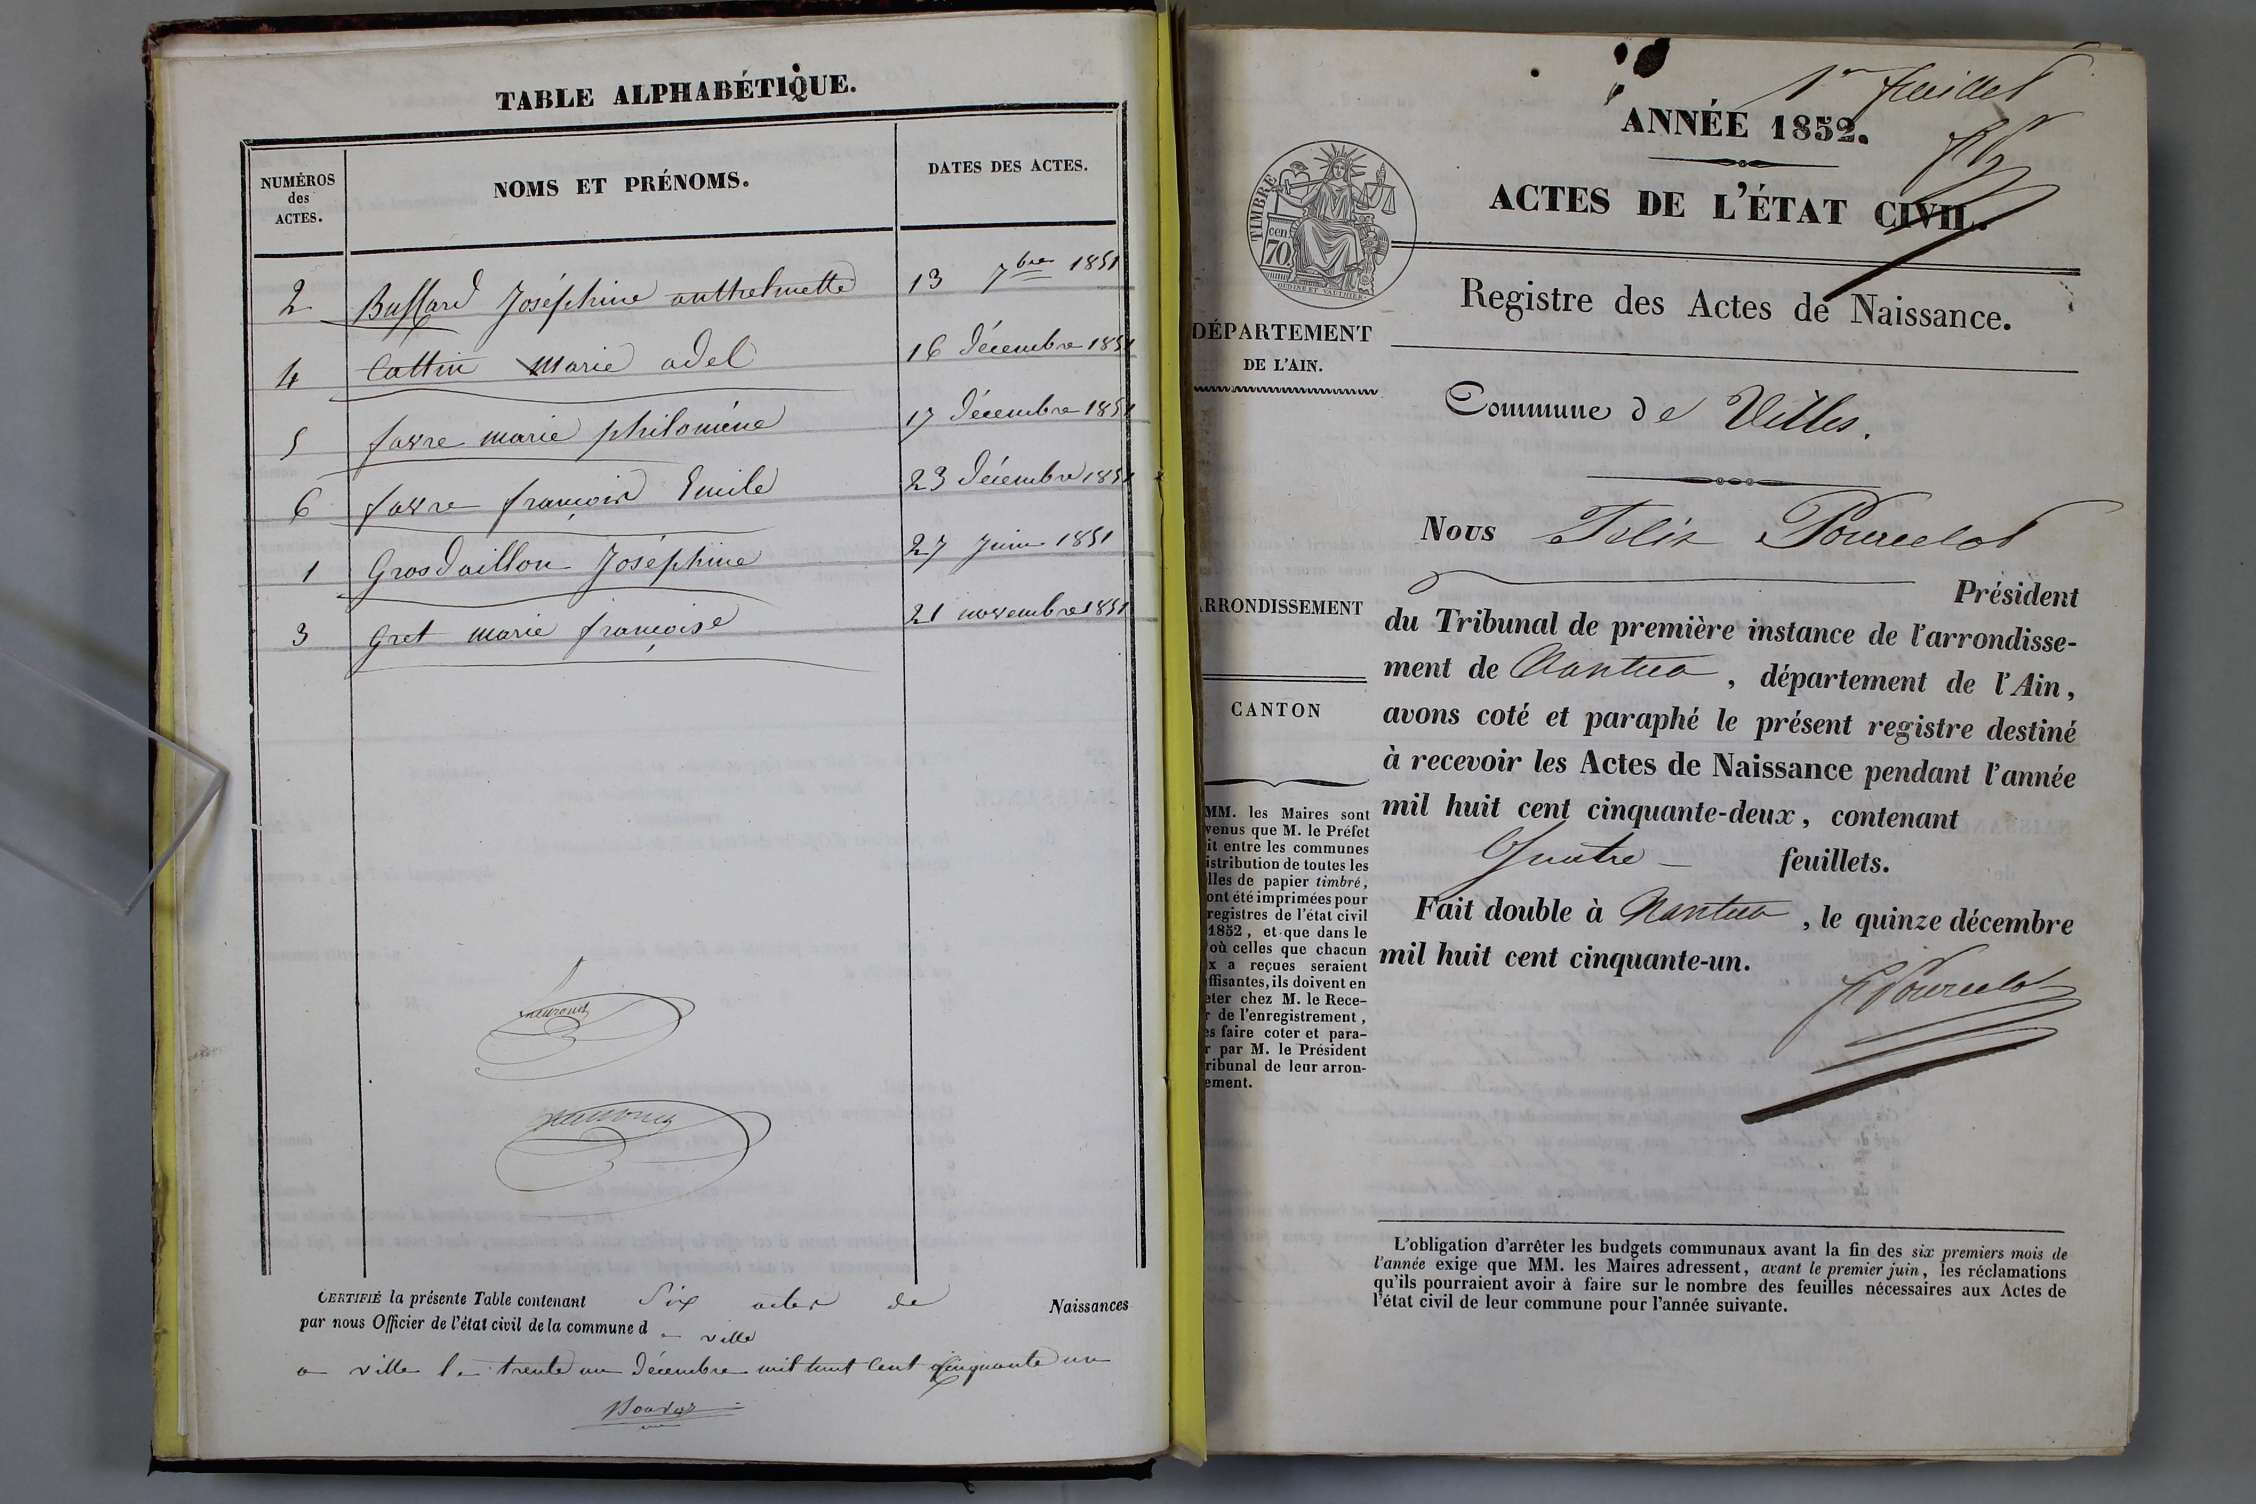 TABLE ALPHABÉTIQUE.
NUMÉROS des ACTES.
NOMS ET PRÉNOMS.
DATES DES ACTES.
2 Bussard Joséphine anthelmette 13 7bre 1851
4 Cattin Marie adel 16 décembre 1851
5 favre marie philomène 17 décembre 1851
6 favre françois Emile 23 décembre 1851
1 Grosdaillon Joséphine 27 juin 1851
3 Gret marie françoise 21 novembre 1851
CERTIFIÉ la présente Table contenant Six actes de Naissances
par nous Officier de l'état civil de la commune d e ville
a ville le trente un décembre mil huit cent cinquante un
1er feuillet
ANNÉE 1852.
ACTES DE L'ÉTAT CIVIL.
TIMBRE
70 cen
OUDINÉ ET VAUTHIER
Registre des Actes de Naissance.
DÉPARTEMENT
DE L'AIN.
Commune de Villes.
Nous Félix Pourcelot
Président
ARRONDISSEMENT
du Tribunal de première instance de l'arrondisse-
ment de Nantua, département de l'Ain,
CANTON
avons coté et paraphé le présent registre destiné
à recevoir les Actes de Naissance pendant l'année
mil huit cent cinquante-deux, contenant
Quatre feuillets.
Fait double à Nantua, le quinze décembre
mil huit cent cinquante-un.
F Pourcelot
MM. les Maires sont
venus que M. le Préfet
it entre les communes
istribution de toutes les
lles de papier timbré,
ont été imprimées pour
registres de l'état civil
1852, et que dans le
où celles que chacun
x a reçues seraient
ffisantes, ils doivent en
eter chez M. le Rece-
r de l'enregistrement,
es faire coter et para-
r par M. le Président
ribunal de leur arron-
ement.
L'obligation d'arrêter les budgets communaux avant la fin des six premiers mois de
l'année exige que MM. les Maires adressent, avant le premier juin, les réclamations
qu'ils pourraient avoir à faire sur le nombre des feuilles nécessaires aux Actes de
l'état civil de leur commune pour l'année suivante.